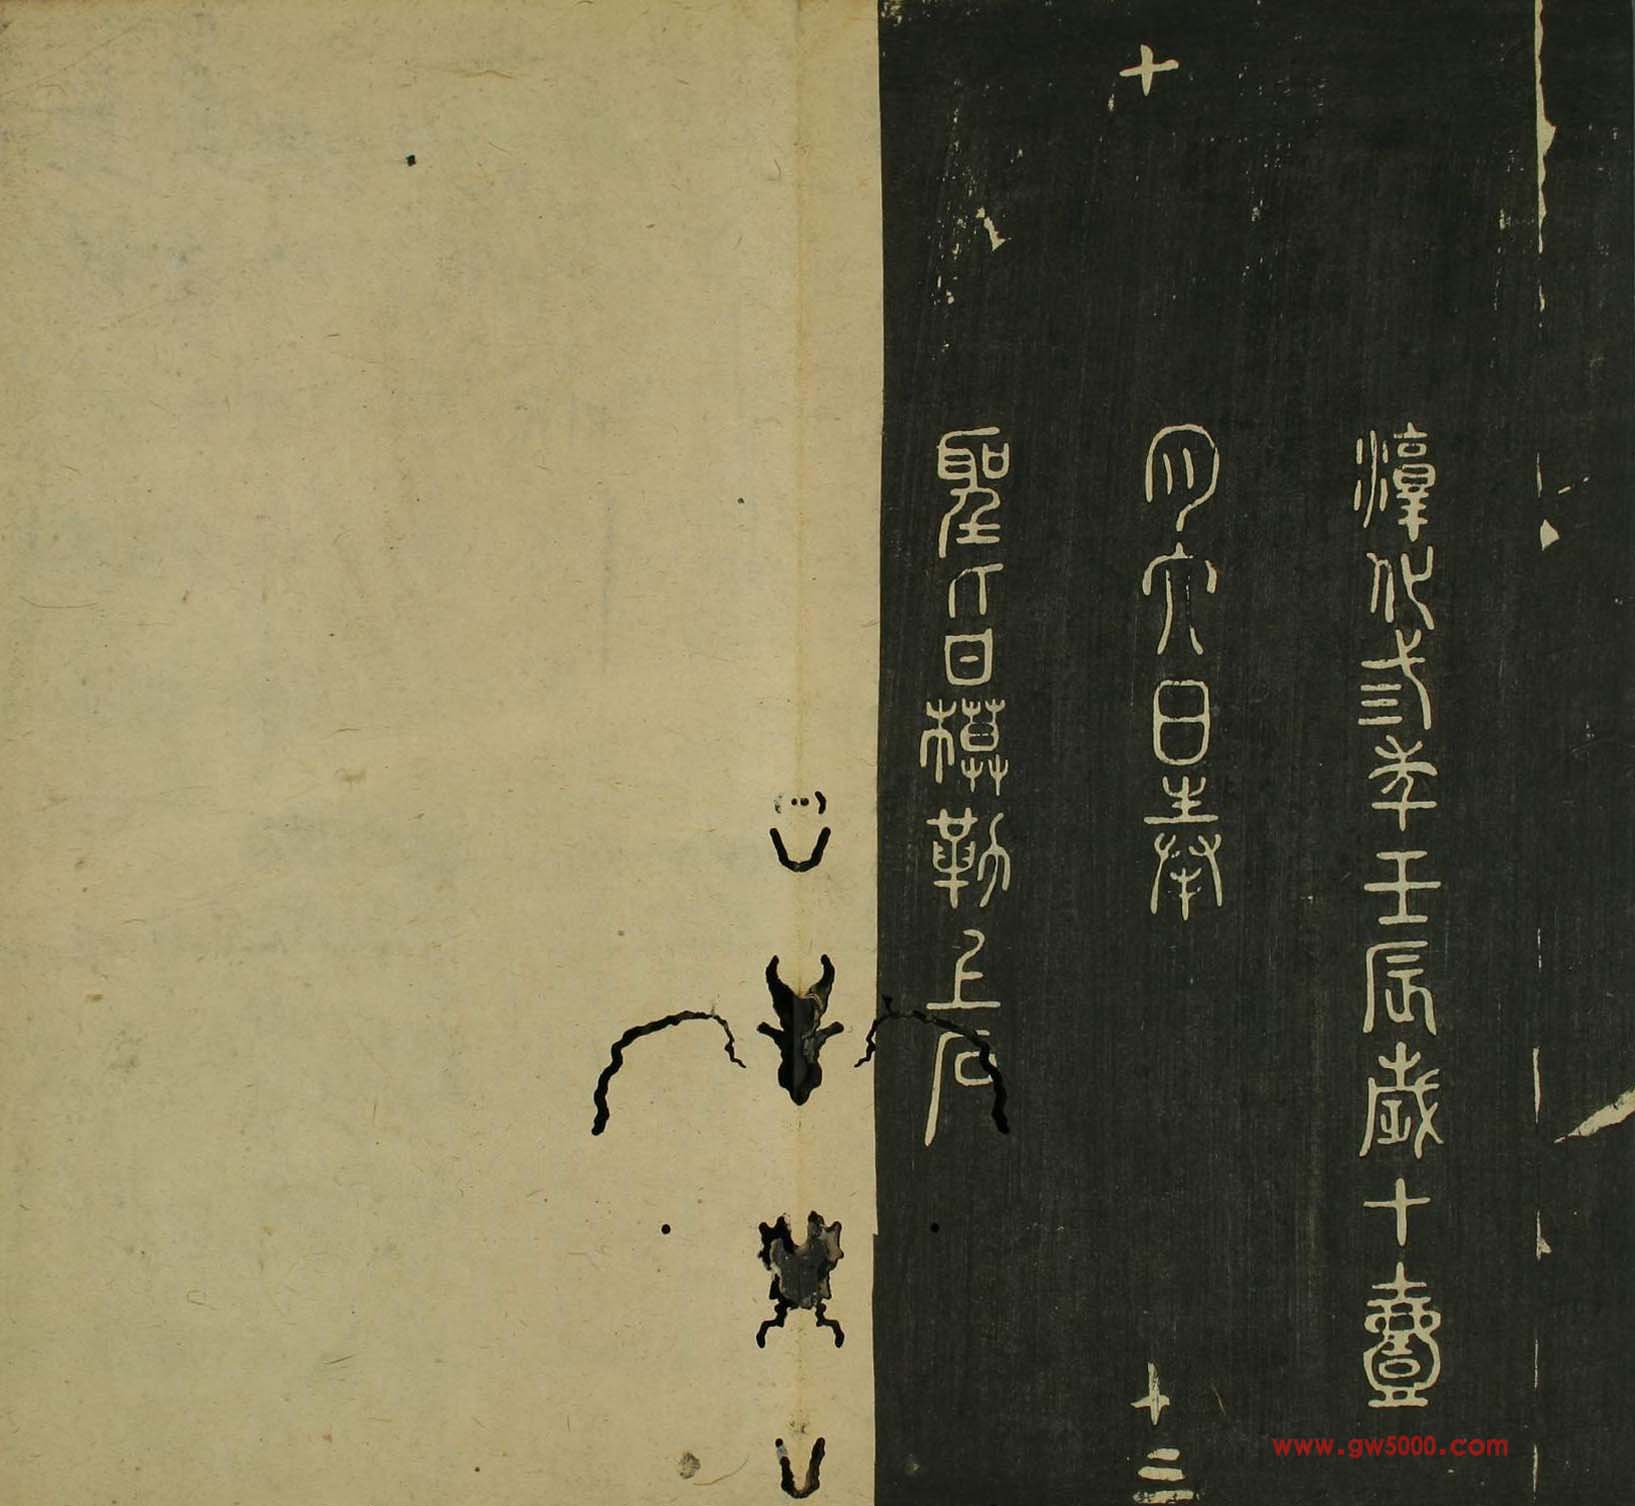 淳化弎年壬辰歲十壹
十
月六日奉
十三
聖旨模勒上石
www.gw5000.com